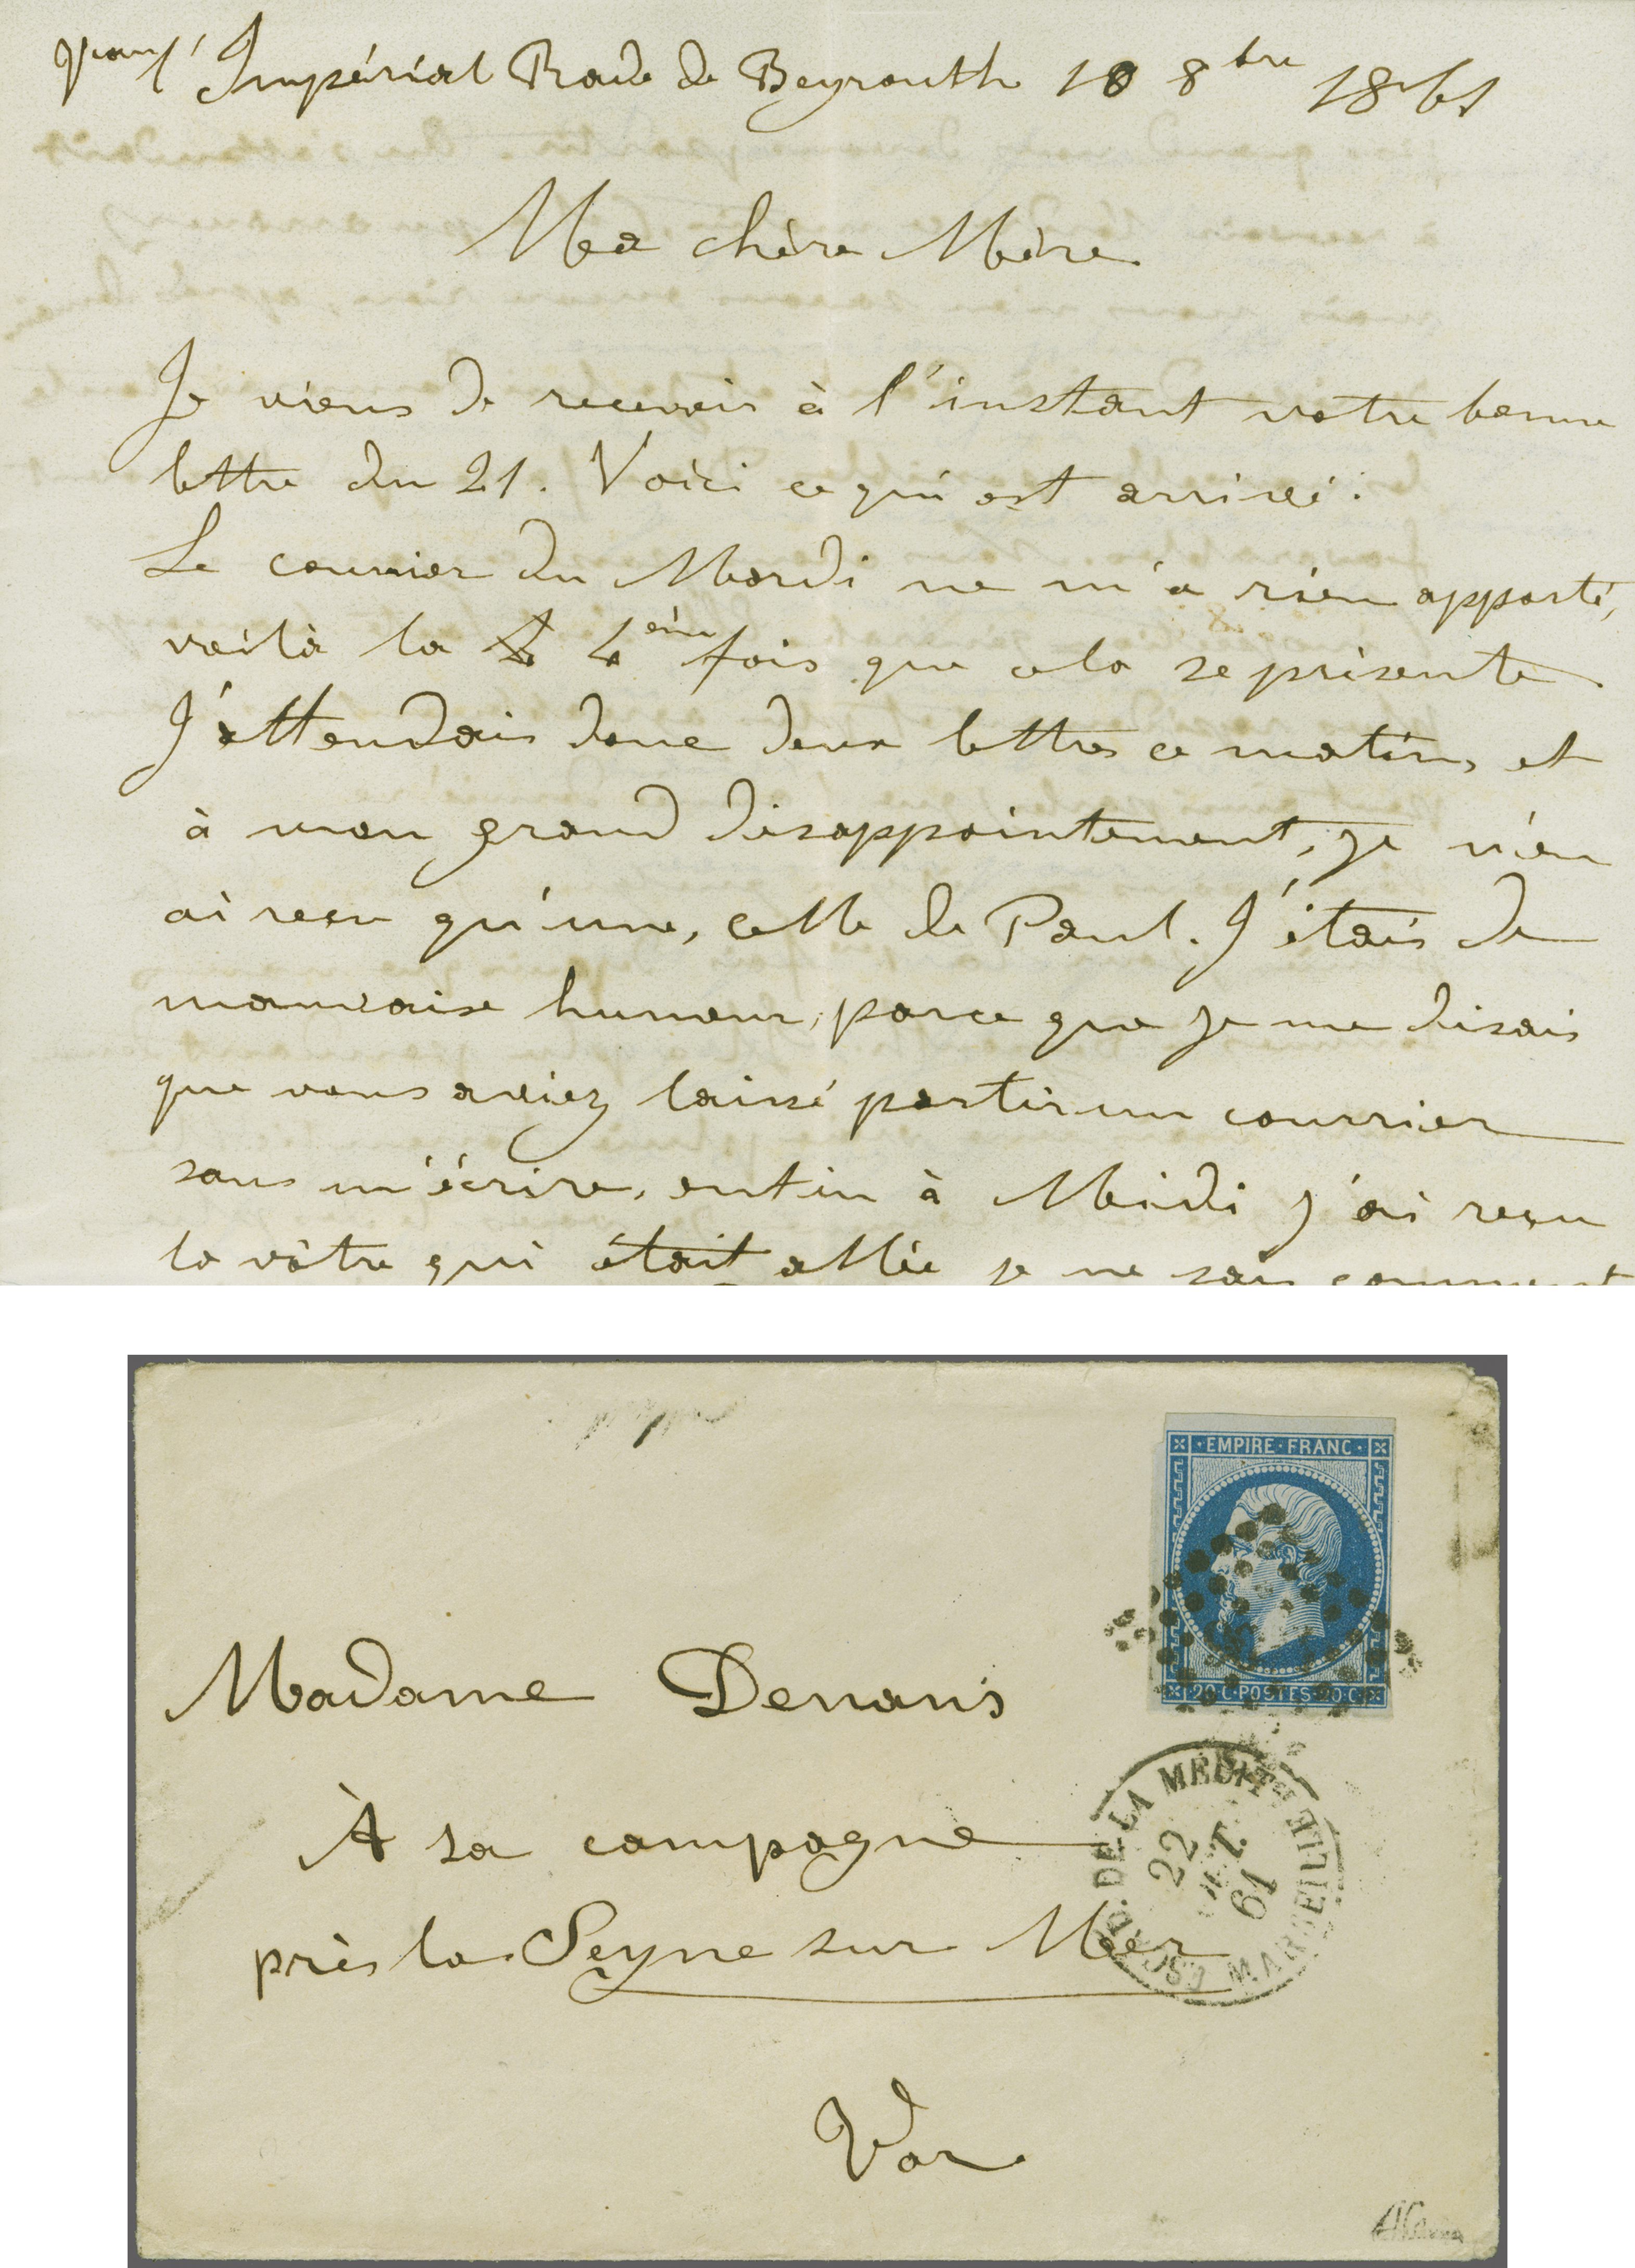 l'Impérial Rade de Beyrouth 10 8bre 1861
Ma chère Mère
Je viens de recevoir à l'instant votre bonne
lettre du 21. Voici ce qui est arrivé :
Le courrier du Mardi ne m'a rien apporté,
voilà la 4ème fois que cela se présente.
J'attendais donc deux lettres ce matin, et
à mon grand désappointement, je n'en
ai reçu qu'une, celle de Paul. J'étais de
mauvaise humeur, parce que je me disais
que vous aviez laissé partir un courrier
sans m'écrire, enfin à Midi j'ai reçu
la vôtre qui était allée je ne sais comment
EMPIRE · FRANC
20 · C · POSTES · 20 · C
Madame Denans
À sa campagne
près la Seyne sur Mer
Var
DE LA MÉDITÉE
22
OCT.
61
MARSEILLE